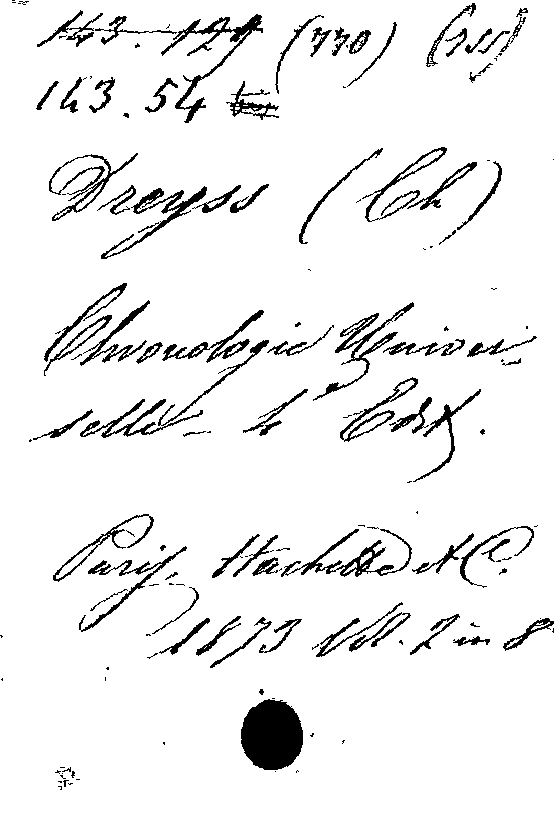 143.129 (770) (755)
143.54
Dreyss (Ch)
Chronologie Univer-
selle - 4e Edit.
Paris, Hachette et C.
1873 Vol. 2 in 8